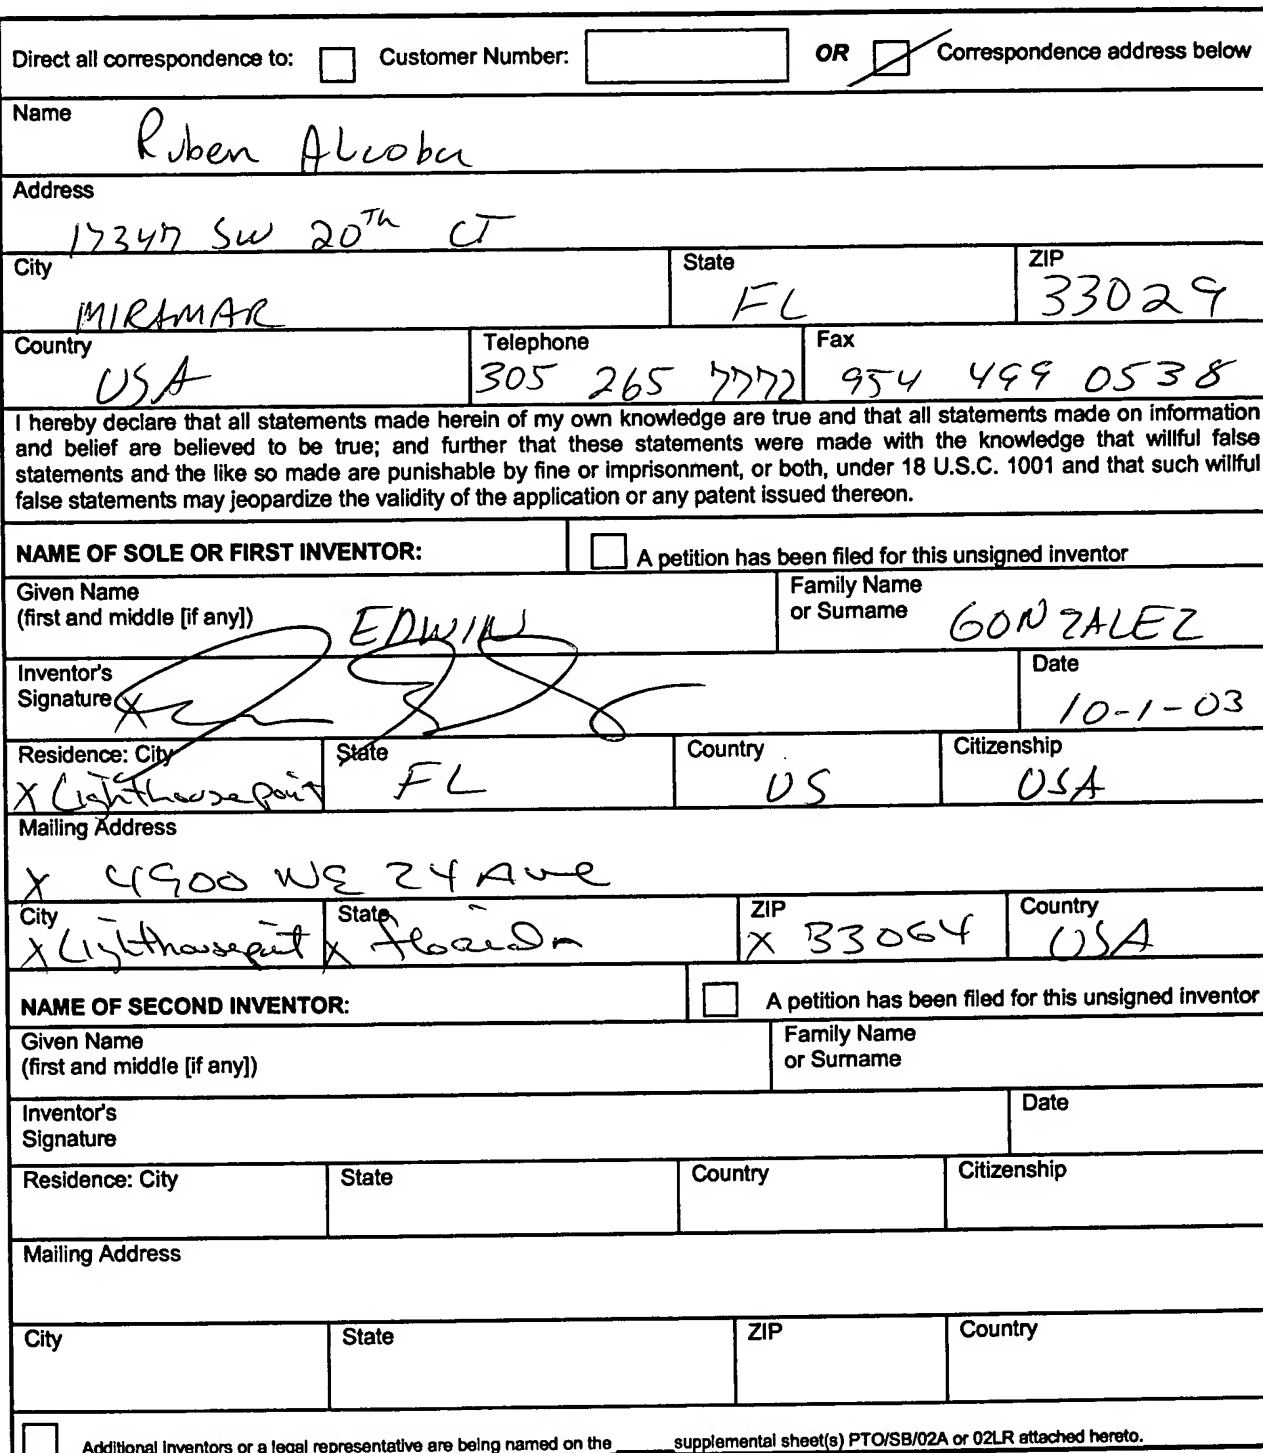 Direct all correspondence to: Customer Number: OR Correspondence address below
Name
Ruben Alcoba
Address
17347 SW 20Th CT
City State ZIP
MIRAMAR FL 33029
Country Telephone Fax
USA 305 265 7772 954 499 0538
I hereby declare that all statements made herein of my own knowledge are true and that all statements made on information
and belief are believed to be true; and further that these statements were made with the knowledge that willful false
statements and the like so made are punishable by fine or imprisonment, or both, under 18 U.S.C. 1001 and that such willful
false statements may jeopardize the validity of the application or any patent issued thereon.
NAME OF SOLE OR FIRST INVENTOR: A petition has been filed for this unsigned inventor
Given Name Family Name
(first and middle [if any]) EDWIN or Surname GONZALEZ
Inventor's Date
Signature X 10-1-03
Residence: City State Country Citizenship
X Lighthousepoint FL US USA
Mailing Address
X 4900 NE 24 Ave
City State ZIP Country
X Lighthousepoit X Florida X 33064 USA
NAME OF SECOND INVENTOR: A petition has been filed for this unsigned inventor
Given Name Family Name
(first and middle [if any]) or Surname
Inventor's Date
Signature
Residence: City State Country Citizenship
Mailing Address
City State ZIP Country
Additional inventors or a legal representative are being named on the _____ supplemental sheet(s) PTO/SB/02A or 02LR attached hereto.